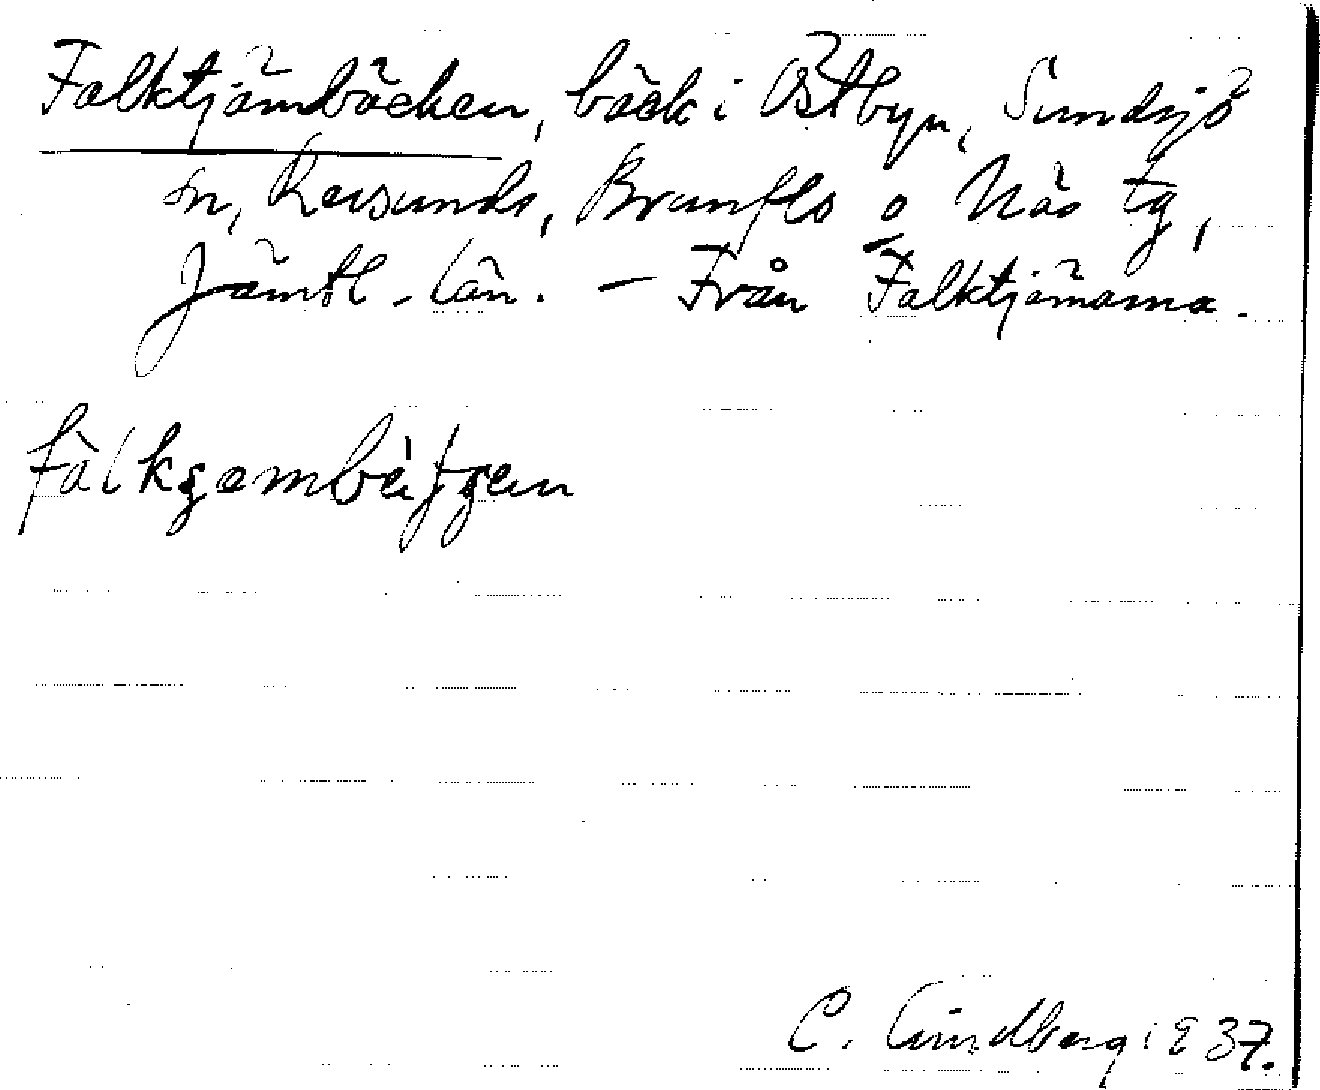 Falktjärnbäcken, bäck i Östbyn, Sundsjö
sn, Revsunds, Brunflo o Näs tg,
Jämtl. län. — Från Falktjärnarna.
C. Lindberg 1937.